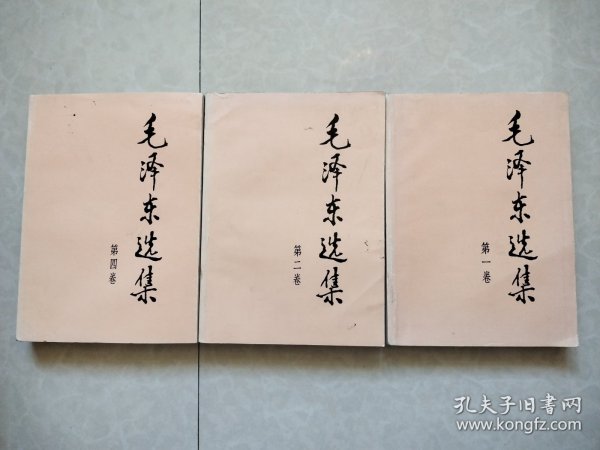 毛泽东选集
第四卷
毛泽东选集
第二卷
毛泽东选集
第一卷
孔夫子旧书网
www.kongfz.com